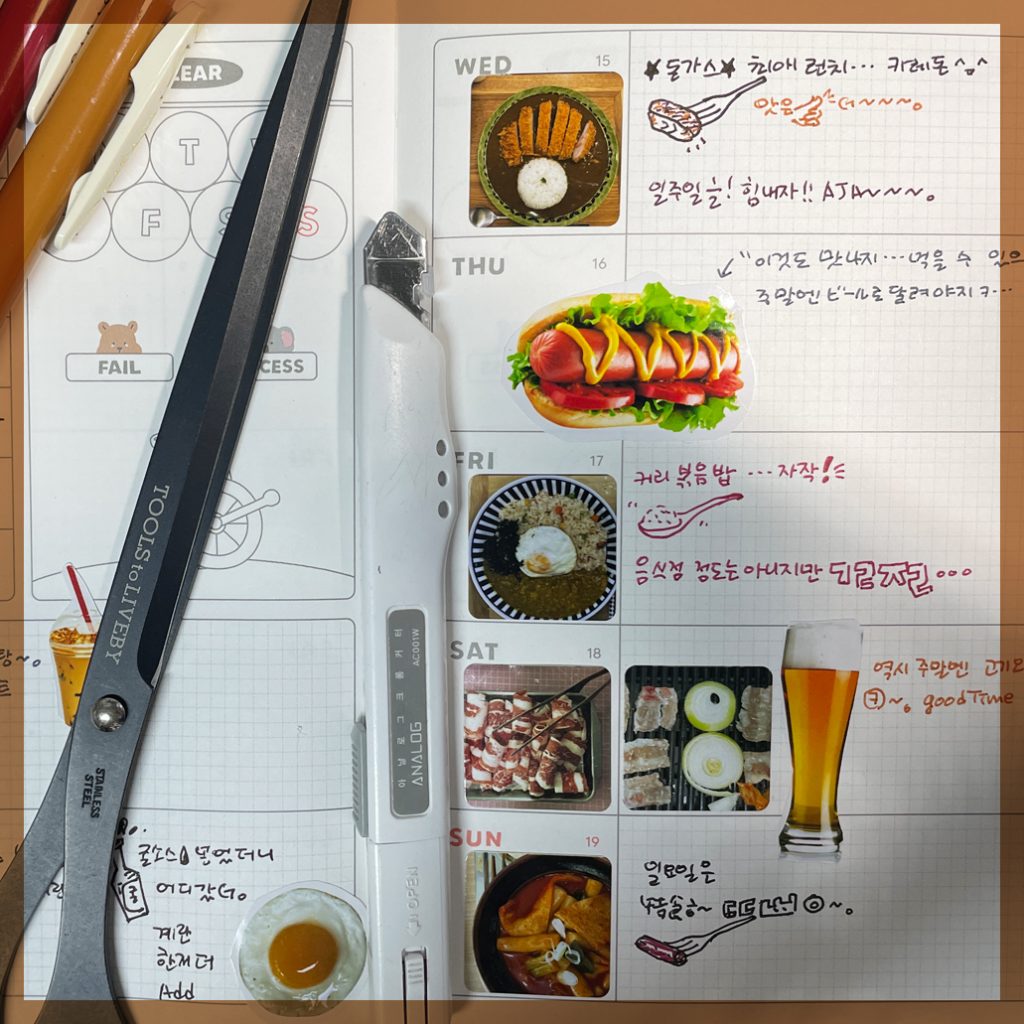 CLEAR
T
F
S
S
FAIL
CESS
TOOLS to LIVEBY
STAINLESS
STEEL
아날로그 크롬 커터
AC001W
ANALOG
OPEN
굴소스
어디갔더。
계란
한저더
Add
WED 15
★돈가스★ 최애 런치... 카레돈^_^
맛음
일주일을! 힘내자!! AJA~~~。
THU 16
"이것도 맛나지...먹을 수 있으
주말엔 ビール로 달려야지ㅋ...
FRI 17
커리 볶음밥 ...자작!
음식점 정도는아니지만
SAT 18
역시 주말엔 고기오
goodTime
SUN 19
일요일은